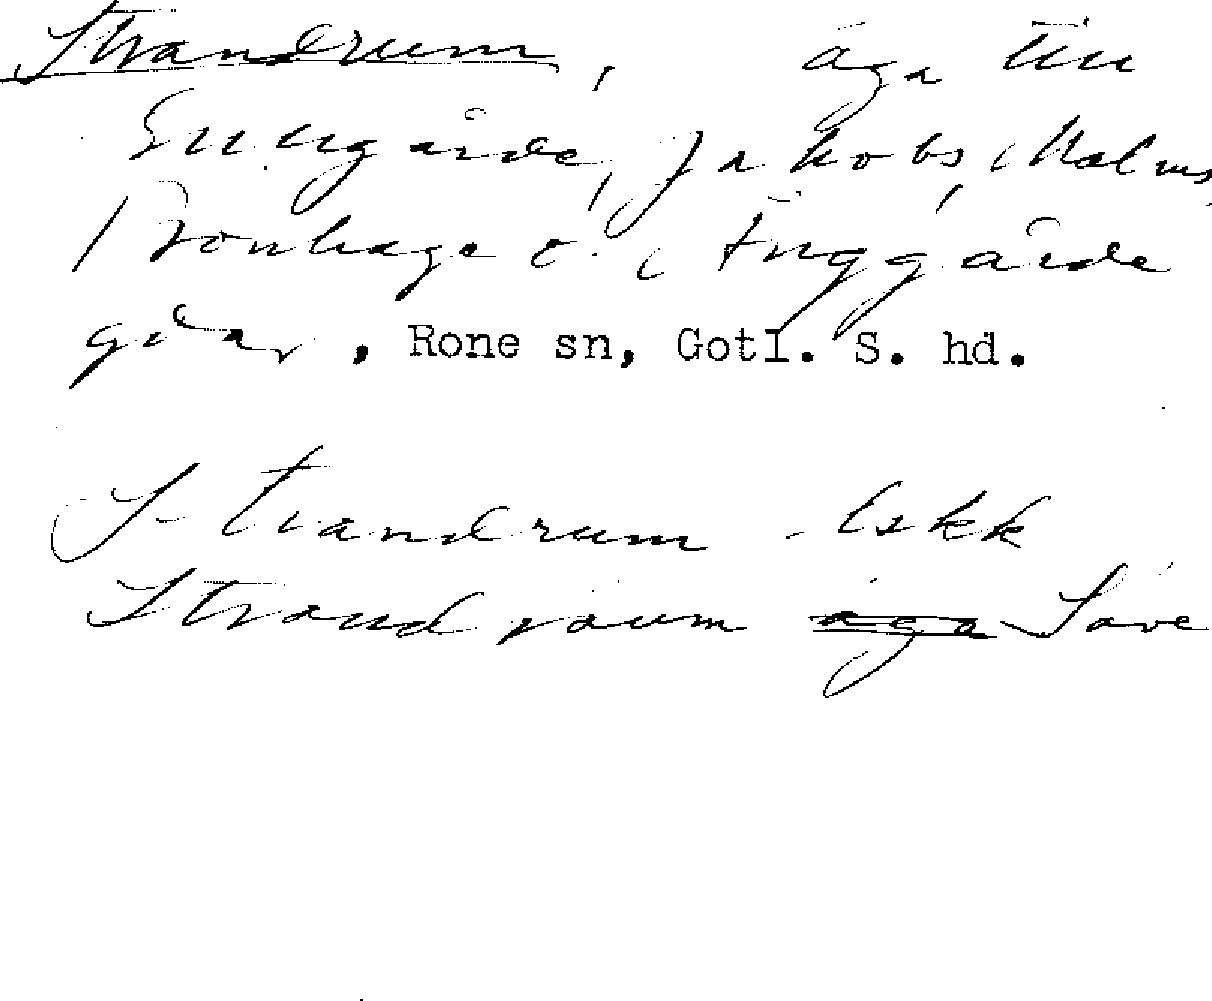 Strandrum, äga till
Enggårde, Jakobs, Malms,
Bonhage o. Änggårde
gdar, Rone sn, Gotl. S. hd.
Strandrum - Eskk
Strandraum äga Säve